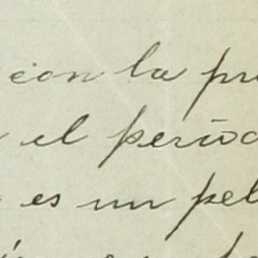 con la pr
el períod
es un pel